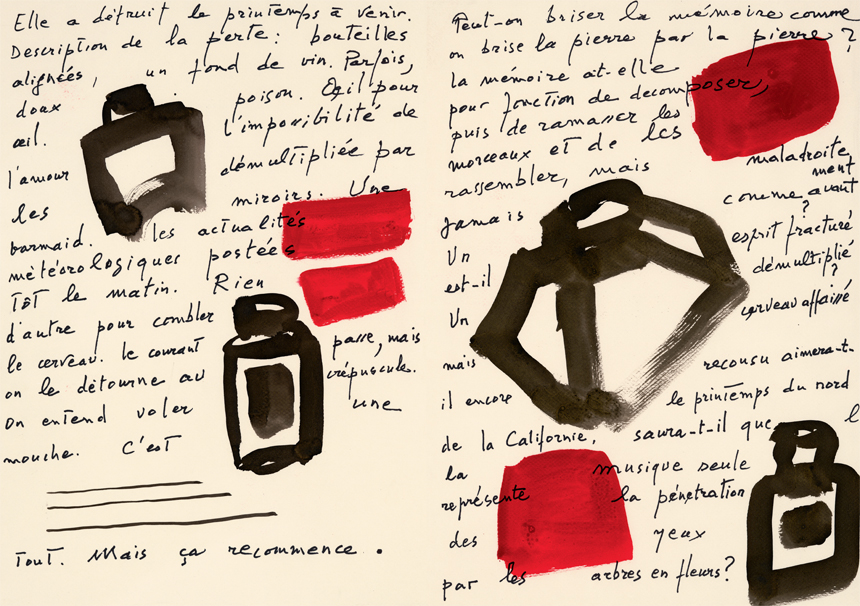 Elle a détruit le printemps à venir.
Description de la perte : bouteilles
alignées, un fond de vin. Parfois,
doux poison. Œil pour
œil. l'impossibilité de
l'amour démultipliée par
les miroirs. Une
barmaid. les actualités
météorologiques postées
Tôt le matin. Rien
d'autre pour combler
le cerveau. le courant passe, mais
on le détourne au crépuscule.
on entend voler une
mouche. C'est
Tout. Mais ça recommence.
Peut-on briser la mémoire comme
on brise la pierre par la pierre ?
la mémoire a-t-elle
pour fonction de decomposer,
puis de ramasser les
morceaux et de les maladroitement
rassembler, mais
jamais comme avant ?
Un esprit fracturé
est-il démultiplié ?
Un cerveau affaissé
mais reconsu aimera-t-
il encore le printemps du nord
de la Californie, saura-t-il que
la musique seule
représente la pénétration
des yeux
par les arbres en fleurs ?